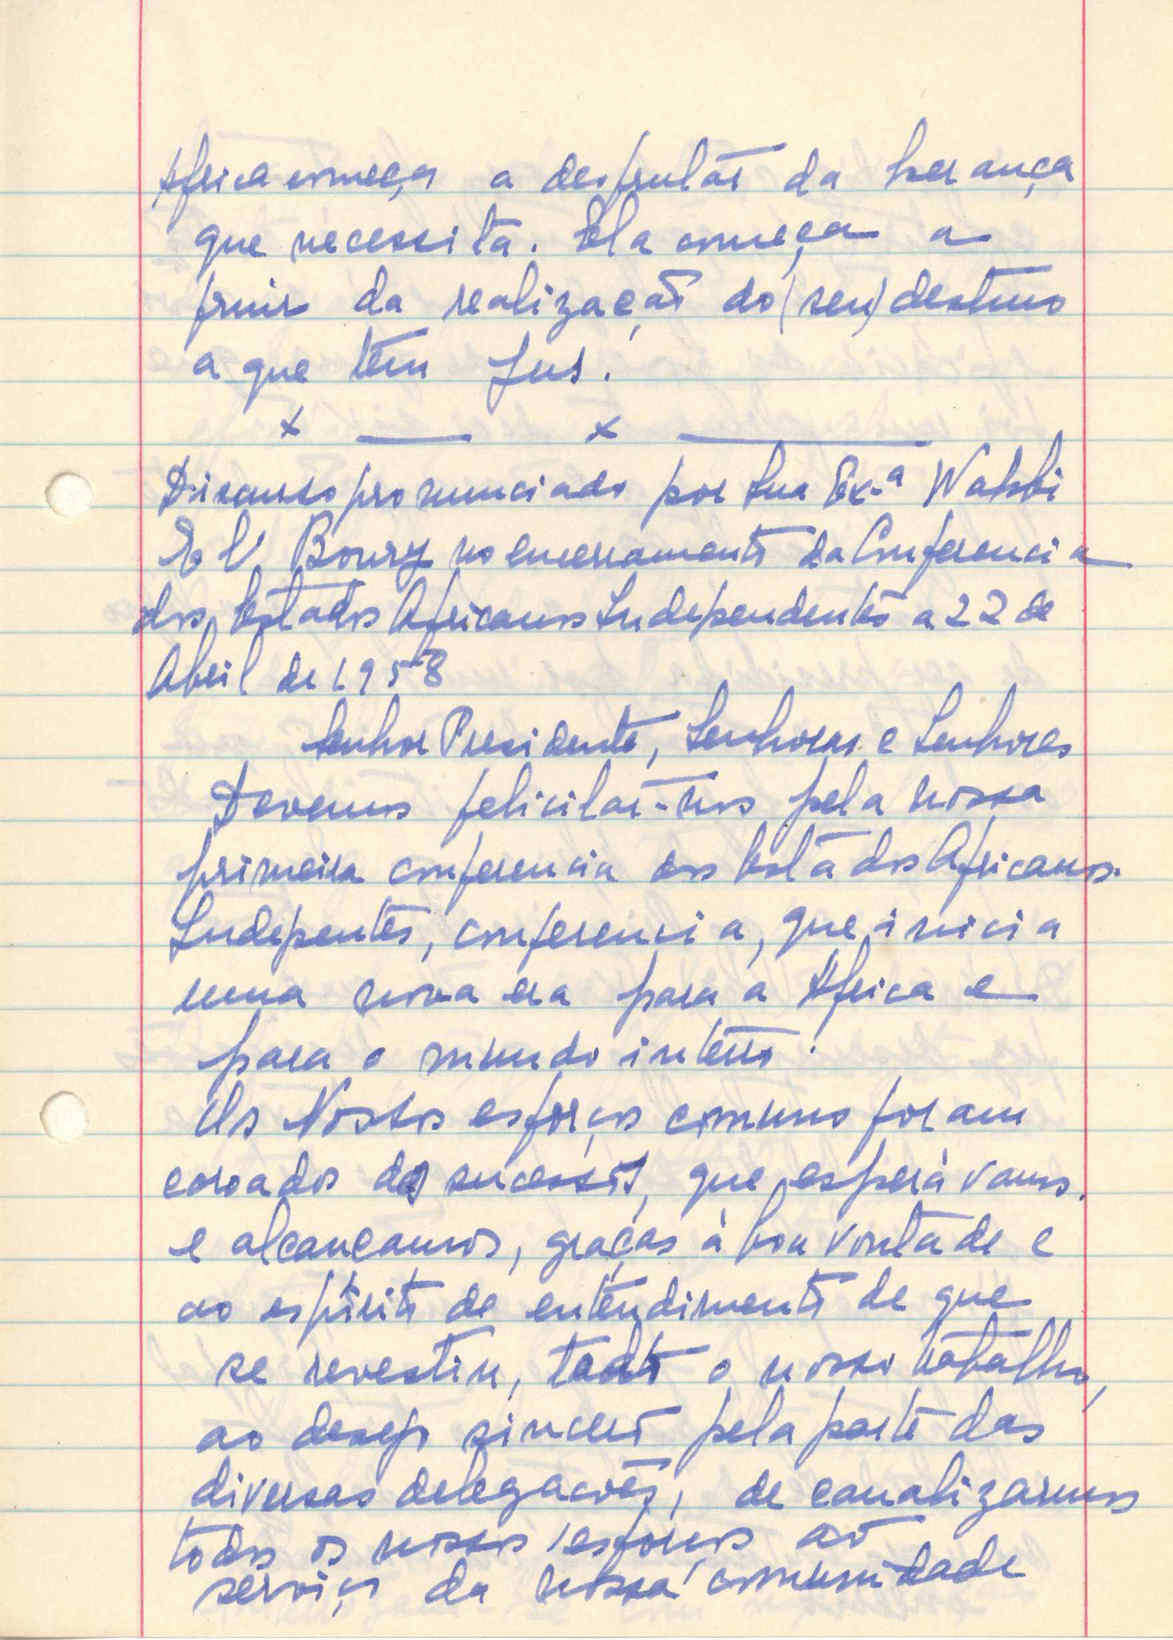 Africa começa a desfrutar da herança
que necessita. Ela começa a
fruir da realização do (seu) destino
a que tem jus.
x — x —
Discurso pronunciado por Sua Ex.ª Wahbi
El Boury no encerramento da Conferencia
dos Estados Africanos Independentes a 22 de
Abril de 1958
Senhor Presidente, Senhoras e Senhores
Devemos felicitar-nos pela nossa
primeira conferencia dos Estados Africanos.
Indepentes, conferencia, que inicia
uma nova era para a Africa e
para o mundo inteiro.
Os Nossos esforços comuns foram
coroados do sucesso, que esperàvamos.
e alcançamos, graças à boa vontade e
ao espírito de entendimento de que
se revestiu, todo o nosso trabalho,
ao desejo sincero pela parte das
diversas delegações, de canalizarmos
todos os nossos esforços ao
serviço da nossa comunidade